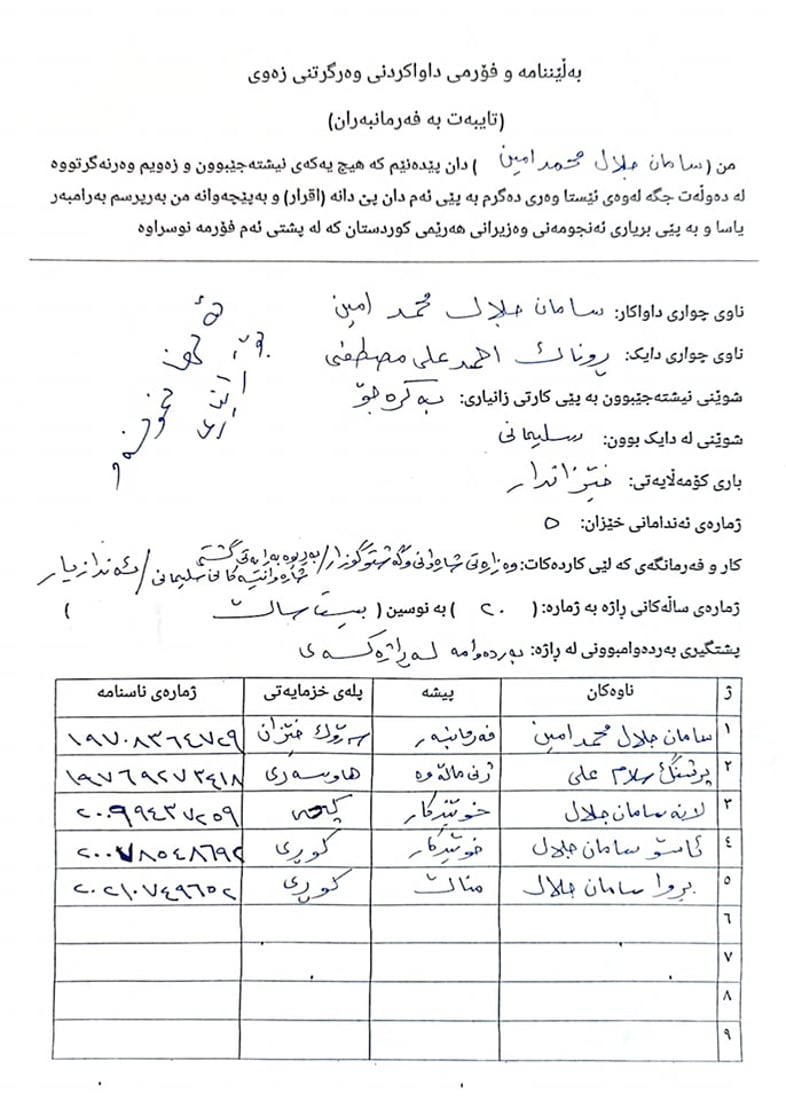 بەڵێننامە و فۆرمی داواکردنی وەرگرتنی زەوی
(تایبەت بە فەرمانبەران)
من ( سامان جلال محمد امین ) دان پێدەنێم کە هیچ یەکەی نیشتەجێبوون و زەویم وەرنەگرتووە
لە دەوڵەت جگە لەوەی ئێستا وەری دەگرم بە پێی ئەم دان پێ دانە (اقرار) و بەپێچەوانە من بەرپرسم بەرامبەر
یاسا و بە پێی بریاری ئەنجومەنی وەزیرانی هەرێمی کوردستان کە لە پشتی ئەم فۆرمە نوسراوە
ناوی چواری داواکار: سامان جلال محمد امین
ناوی چواری دایک: روناك احمد علی مصطفی
شوێنی نیشتەجێبوون بە پێی کارتی زانیاری: بەکرەجۆ
شوێنی لە دایک بوون: سلیمانی
باری کۆمەڵایەتی: خێزاندار
ژمارەی ئەندامانی خێزان: ٥
کار و فەرمانگەی کە لێی کاردەکات: وەزارەتی شارەوانی و گەشتوگوزار/ بەڕێوەبەرایەتی گشتی
شارەوانیەکانی سلیمانی / ئەندازیار
ژمارەی ساڵەکانی ڕاژە بە ژمارە: ( ٢٠ ) بە نوسین ( بیست ساڵ )
پشتگیری بەردەوامبوونی لە ڕاژە: بەردەوامە لە ڕاژەکەی
ژ ناوەکان پیشە پلەی خزمایەتی ژمارەی ناسنامە
١ سامان جلال محمد امین فەرمانبەر سەرۆك خێزان ١٩٧٠٨٣٦٤٧٢٩
٢ سلام علی ژنی ماڵەوە هاوسەری ١٩٧٦٩٢٧٣٤١٨
٣ لانە سامان جلال خوێندکار کچی ٢٠٠٩٩٤٣٧٢٥٩
٤ ئاسۆ سامان جلال خوێندکار کوڕی ٢٠٠٧٨٥٤٨٦٩٢
٥ بروا سامان جلال منداڵ کوڕی ٢٠٢١٠٧٤٩٦٥٢
٦
٧
٨
٩